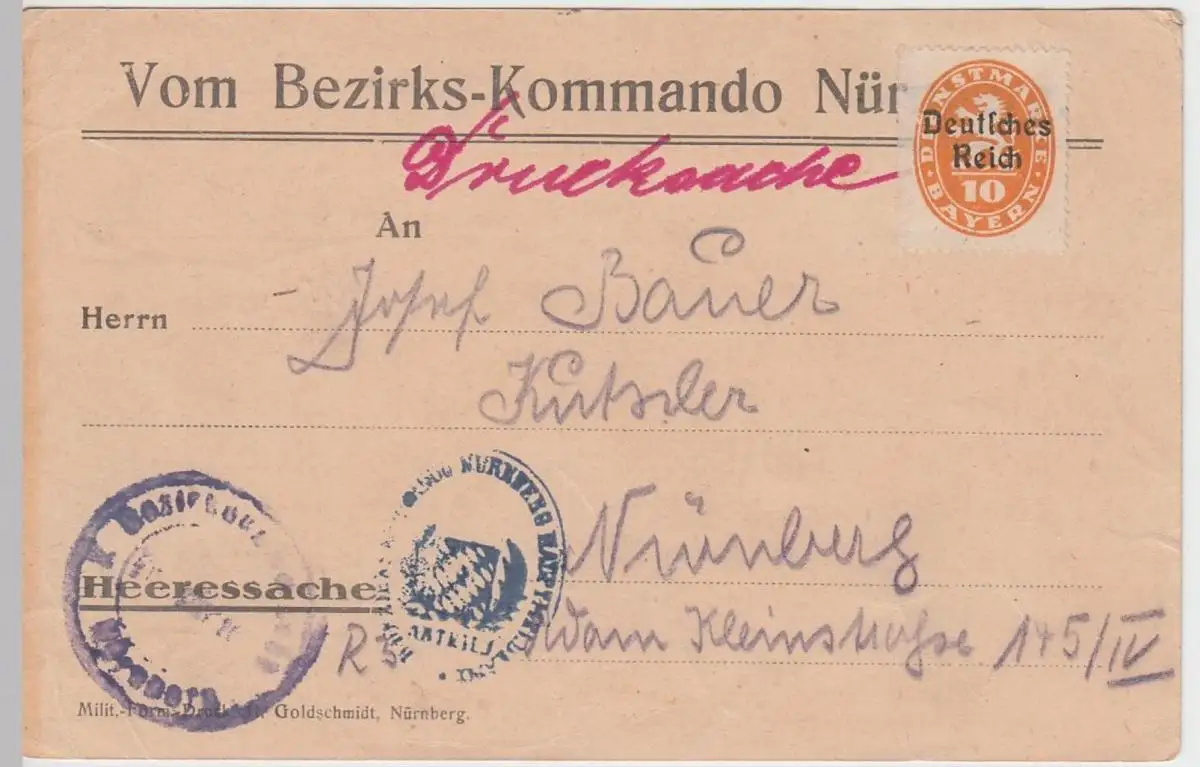 Vom Bezirks-Kommando Nür
DIENSTMARKE
Deutſches
Reich
10
BAYERN
Drucksache
An
Herrn Josef Bauer
Kutscher
Nürnberg
Heeressache
Adam Kleinstraße 145/IV
NÜRNBERG
Milit.-Form.-Druck Goldschmidt, Nürnberg.